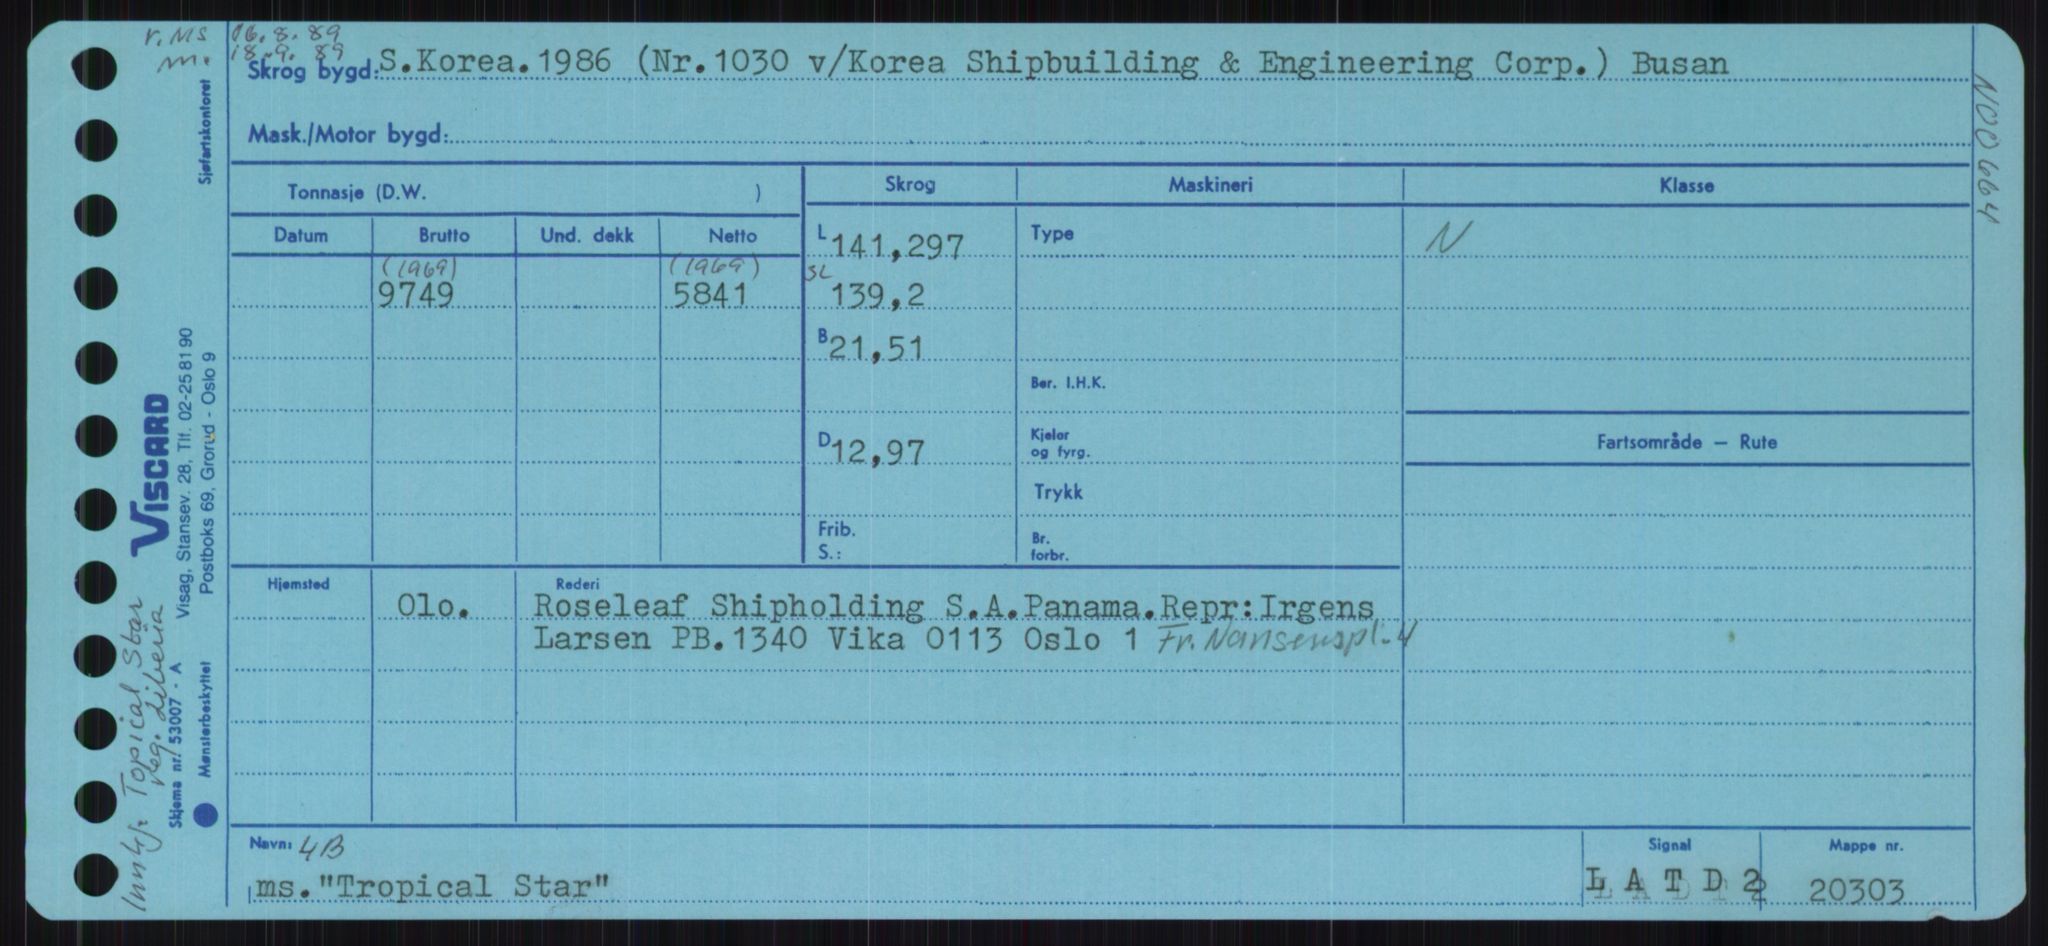 r. MS 16.8.89
m. 18.9.89
Skrog bygd: S.Korea.1986 (Nr.1030 v/Korea Shipbuilding & Engineering Corp.) Busan
Mask./Motor bygd:
Tonnasje (D.W. )
Skrog Maskineri Klasse
Datum Brutto Und. dekk Netto
L 141,297 Type N
(1969) (1969)
9749 5841 SL 139,2
B 21,51
Ber. I.H.K.
D 12,97 Kjeler
og fyrg.
Fartsområde — Rute
Trykk
Frib.
S.:
Br.
forbr.
Hjemsted Rederi
Olo. Roseleaf Shipholding S.A.Panama.Repr:Irgens
Larsen PB.1340 Vika 0113 Oslo 1 Fr. Nansenspl. 4
Navn: 4B Signal Mappe nr.
ms."Tropical Star" L A T D 2 20303
N00664
Sjøfartskontoret
VISCARD
Visag, Stansev. 28, Tlf. 02-25 81 90
Postboks 69, Grorud - Oslo 9
Skjema nr. 53007 - A
Mønsterbeskyttet
Topical Star
reg. Liberia